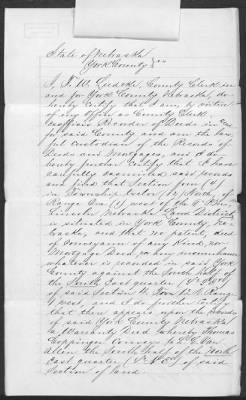 State of Nebraska
York County } ss
I, F. W. County Clerk in
and for York County Nebraska, do
hereby certify that I am, by virtue
of my Office as County Clerk
Recorder of Deeds in and
for said County and am the law-
ful Custodian of the Records of
Deeds and Mortgages, and I do
hereby further Certify that I have
carefully examined said records
and find that Section four (4)
in Township twelve (12) North, of
Range One (1) west of the 6
Lincoln Nebraska Land District,
is situated in York County, Ne-
braska, and that no patent, deed
of Conveyance of any kind, nor
Mortgage Deed, or any incumbrance
whatever is recorded in said York
County against the South half of
the South East quarter
of said Section 4 Town 12 N Range
1 west, and I do further Certify
that there appears upon the records
of said York County Nebraska
a Warranty Deed whereby Thomas
Coppinger Conveys to
Allen the South half of the North
East quarter of said
Section of land